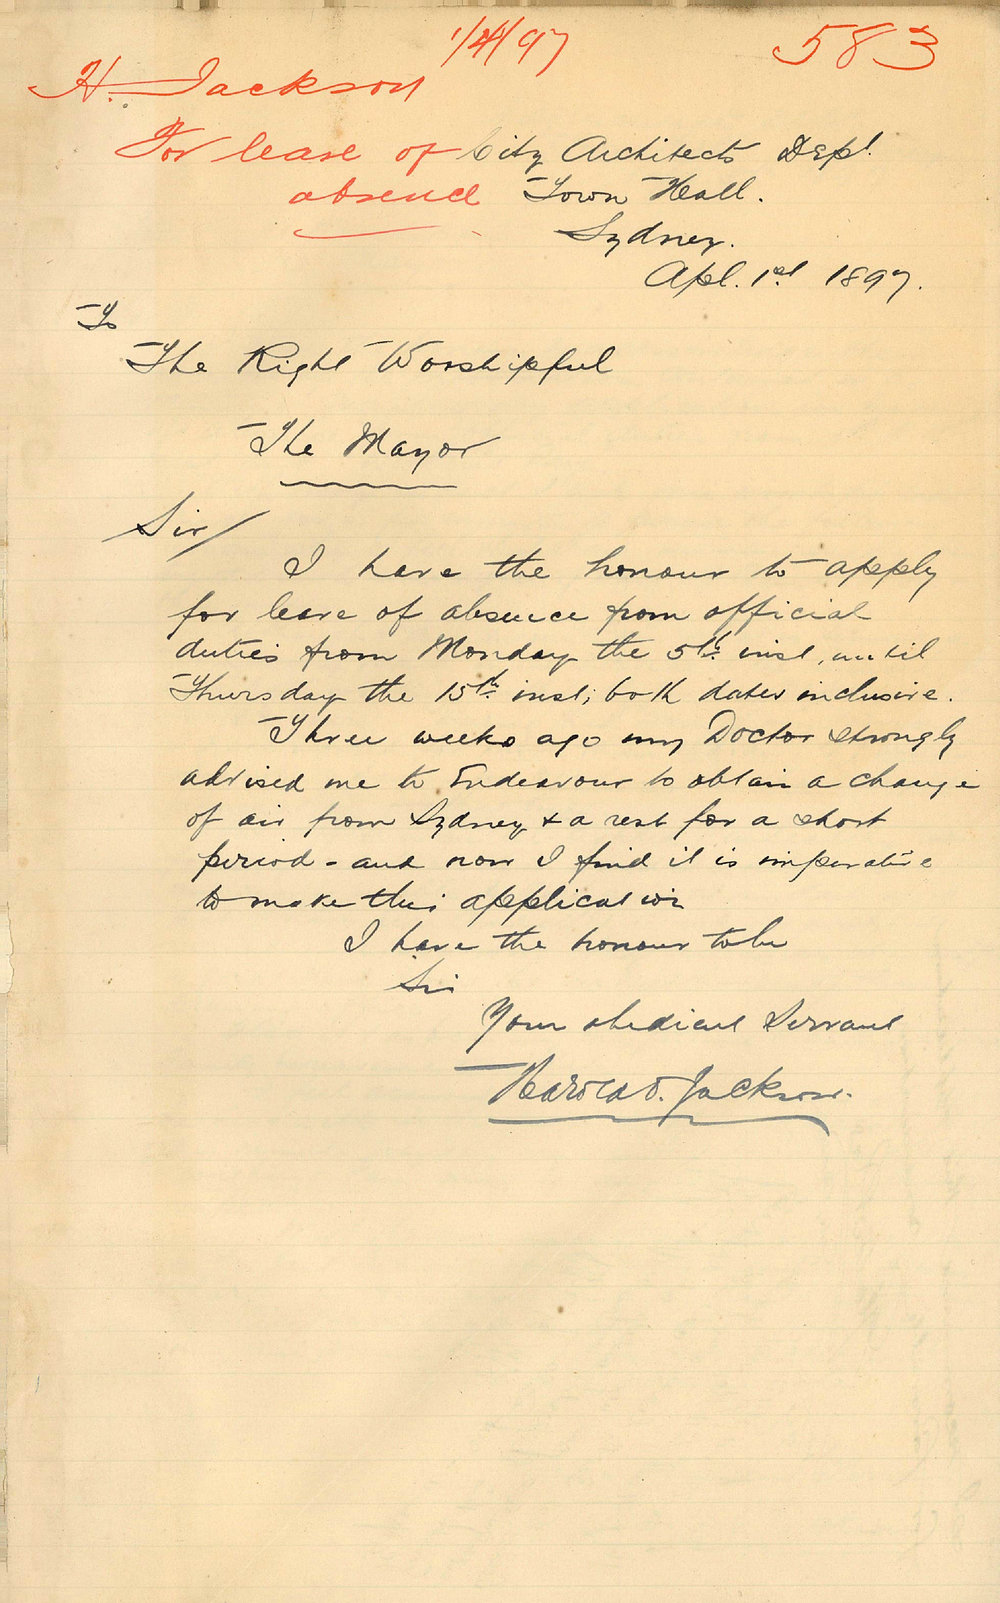 1/4/97
583
H. Jackson
For leave of
absence
City Architects Dept.
Town Hall.
Sydney.
Apl. 1st 1897.
To
The Right Worshipful
The Mayor
Sir/
I have the honour to apply
for leave of absence from official
duties from Monday the 5th inst, until
Thursday the 15th inst; both dates inclusive.
Three weeks ago my Doctor strongly
advised me to Endeavour to obtain a change
of air from Sydney & a rest for a short
period - and now I find it is imperative
to make this application
I have the honour to be
Sir
Your obedient Servant
Harold Jackson.